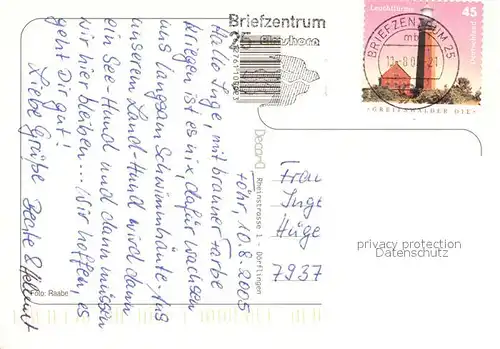 Briefzentrum
25
Elmshorn
Leuchttürme
45
Deutschland
BRIEFZENTRUM 25
mb
"GREIFSWALDER OIE"
Föhr, 10.8.2005
Hallo Inge, mit brauner Farbe
kriegen ist es nix, dafür wachsen
uns langsam Schwimmhäute. Aus
unserem Land-Hund wird dann
ein See-Hund und dann müssen
wir hier bleiben... Wir hoffen, es
geht Dir gut!
Liebe Grüße
& Helmut
Foto: Raabe
Rheinstrasse 1 - Dörflingen
Frau
Inge
Hüge
7937
privacy protection
Datenschutz